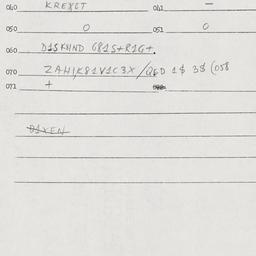 060 KREXET 061 —
050 0 051 0
060 D1SKHND G81S+R1G+.
070 ZAHIK81V1C3X/Q&D 1$ 3$ (058
071 +
D1XEN